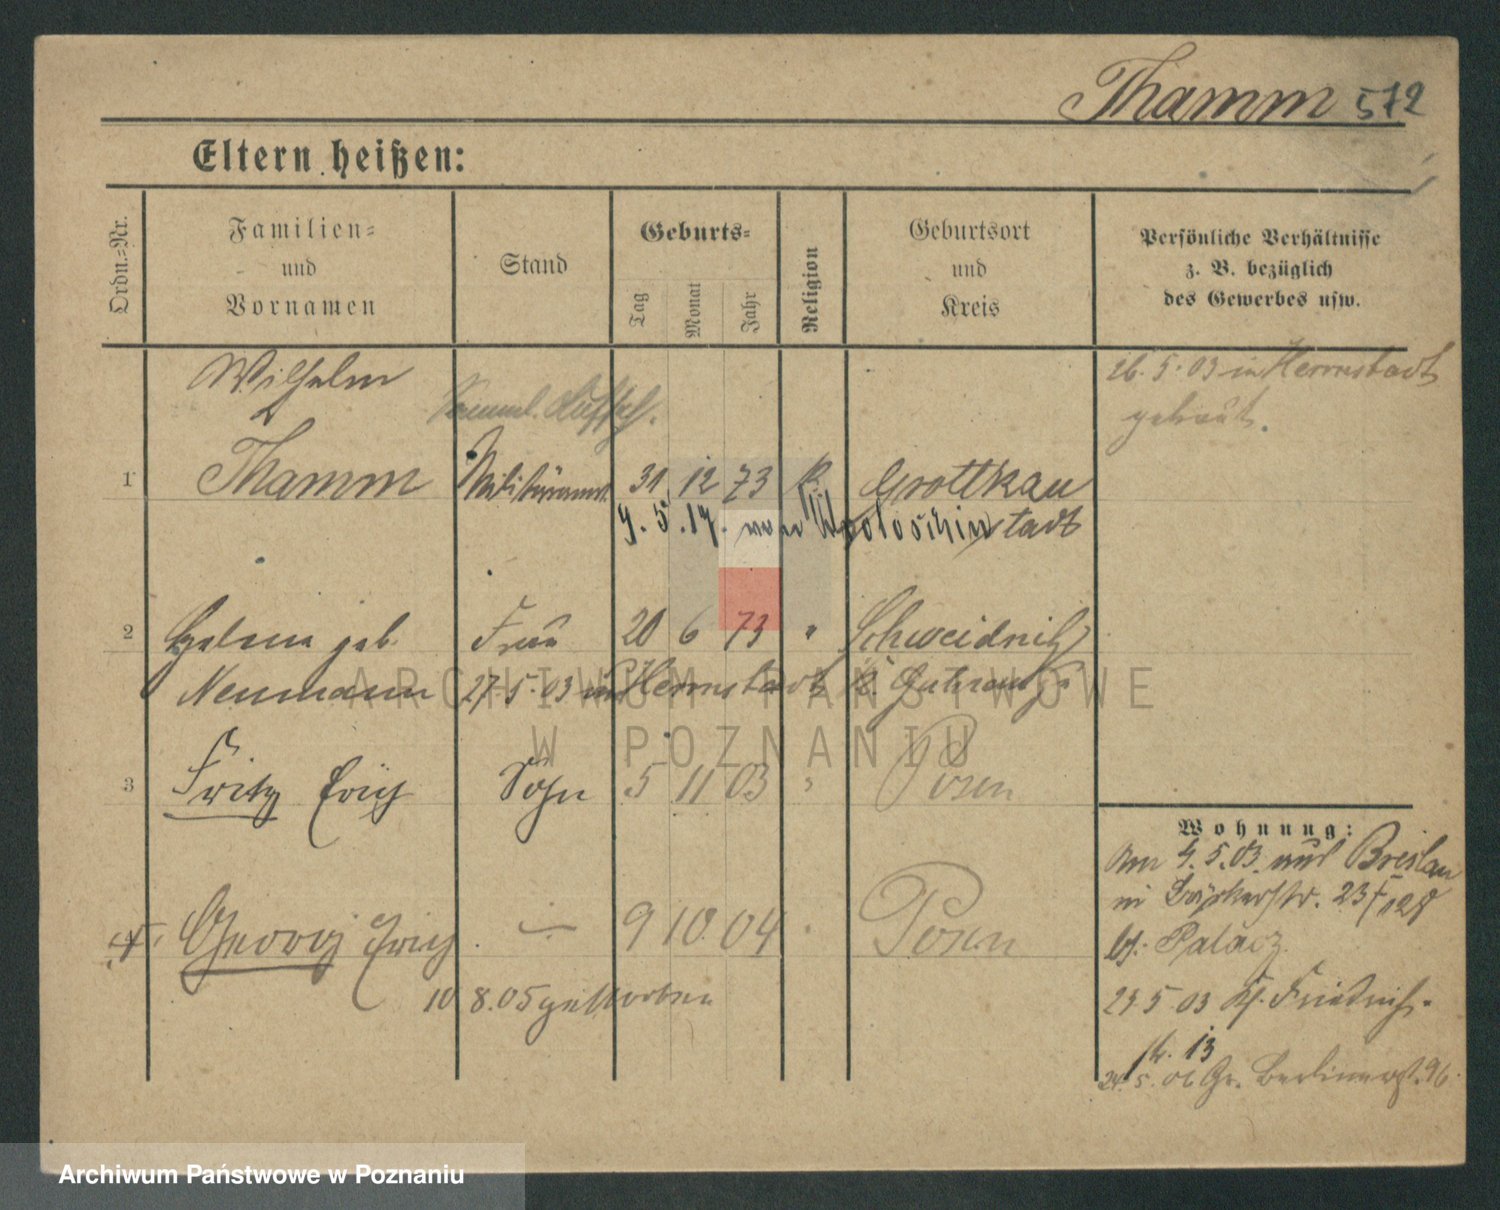 Thamm 572
Eltern heißen:
Ordn.-Nr.
Familien- und Vornamen
Stand
Geburts-
Tag
Monat
Jahr
Religion
Geburtsort und Kreis
Persönliche Verhältnisse
z. B. bezüglich
des Gewerbes usw.
Wilhelm
26. 5. 03 in Herrnstadt
getraut.
1 Thamm 31 12 73 k. Grottkau
4. 5. 17. von stadt
2 Helene geb Frau 20 6 73 " Schweidnitz
Neumann 27. 5. 03 in Herrnstadt K. Guhrau
3 Fritz Erich Sohn 5 11 03 " Posen
4 Georg Erich — 9 10. 04 " Posen
10 8. 05 gestorben
Wohnung:
Am 4. 5. 03. aus Breslau
23
bf. Palacz
23 5 03 Kl. Friedrich-
str. 13
24. 5. 06 Gr. Berlinerst. 96.
ARCHIWUM PAŃSTWOWE
W POZNANIU
Archiwum Państwowe w Poznaniu